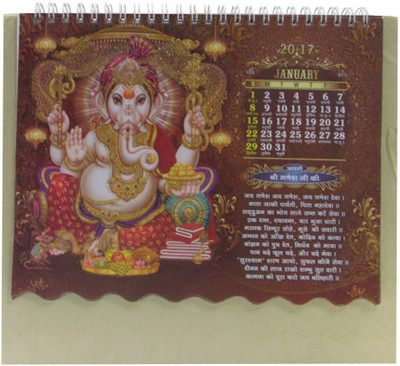 2017
JANUARY
S M T W T F S
1 2 3 4 5 6 7
8 9 10 11 12 13 14
15 16 17 18 19 20 21
22 23 24 25 26 27 28
29 30 31
आरती
श्री गणेश जी की
जय गणेश जय गणेश, जय गणेश देवा ।
माता जाकी पार्वती, पिता महादेवा ॥
लड्डुअन का भोग लागे सन्त करें सेवा ॥
एक दन्त, दयावन्त, चार भुजा धारी ।
मस्तक सिन्दूर सोहे, मूसे की सवारी ॥
अन्धन को आँख देत, कोढ़िन को काया ।
बांझन को पुत्र देत, निर्धन को माया ॥
पान चढ़े फूल चढ़े, और चढ़े मेवा ।
शरण आयो, सुफल कीजे सेवा ॥
दीनन की लाज राखो शम्भु सुत वारी ।
कामना को पूरा करो जय बलिहारी ॥